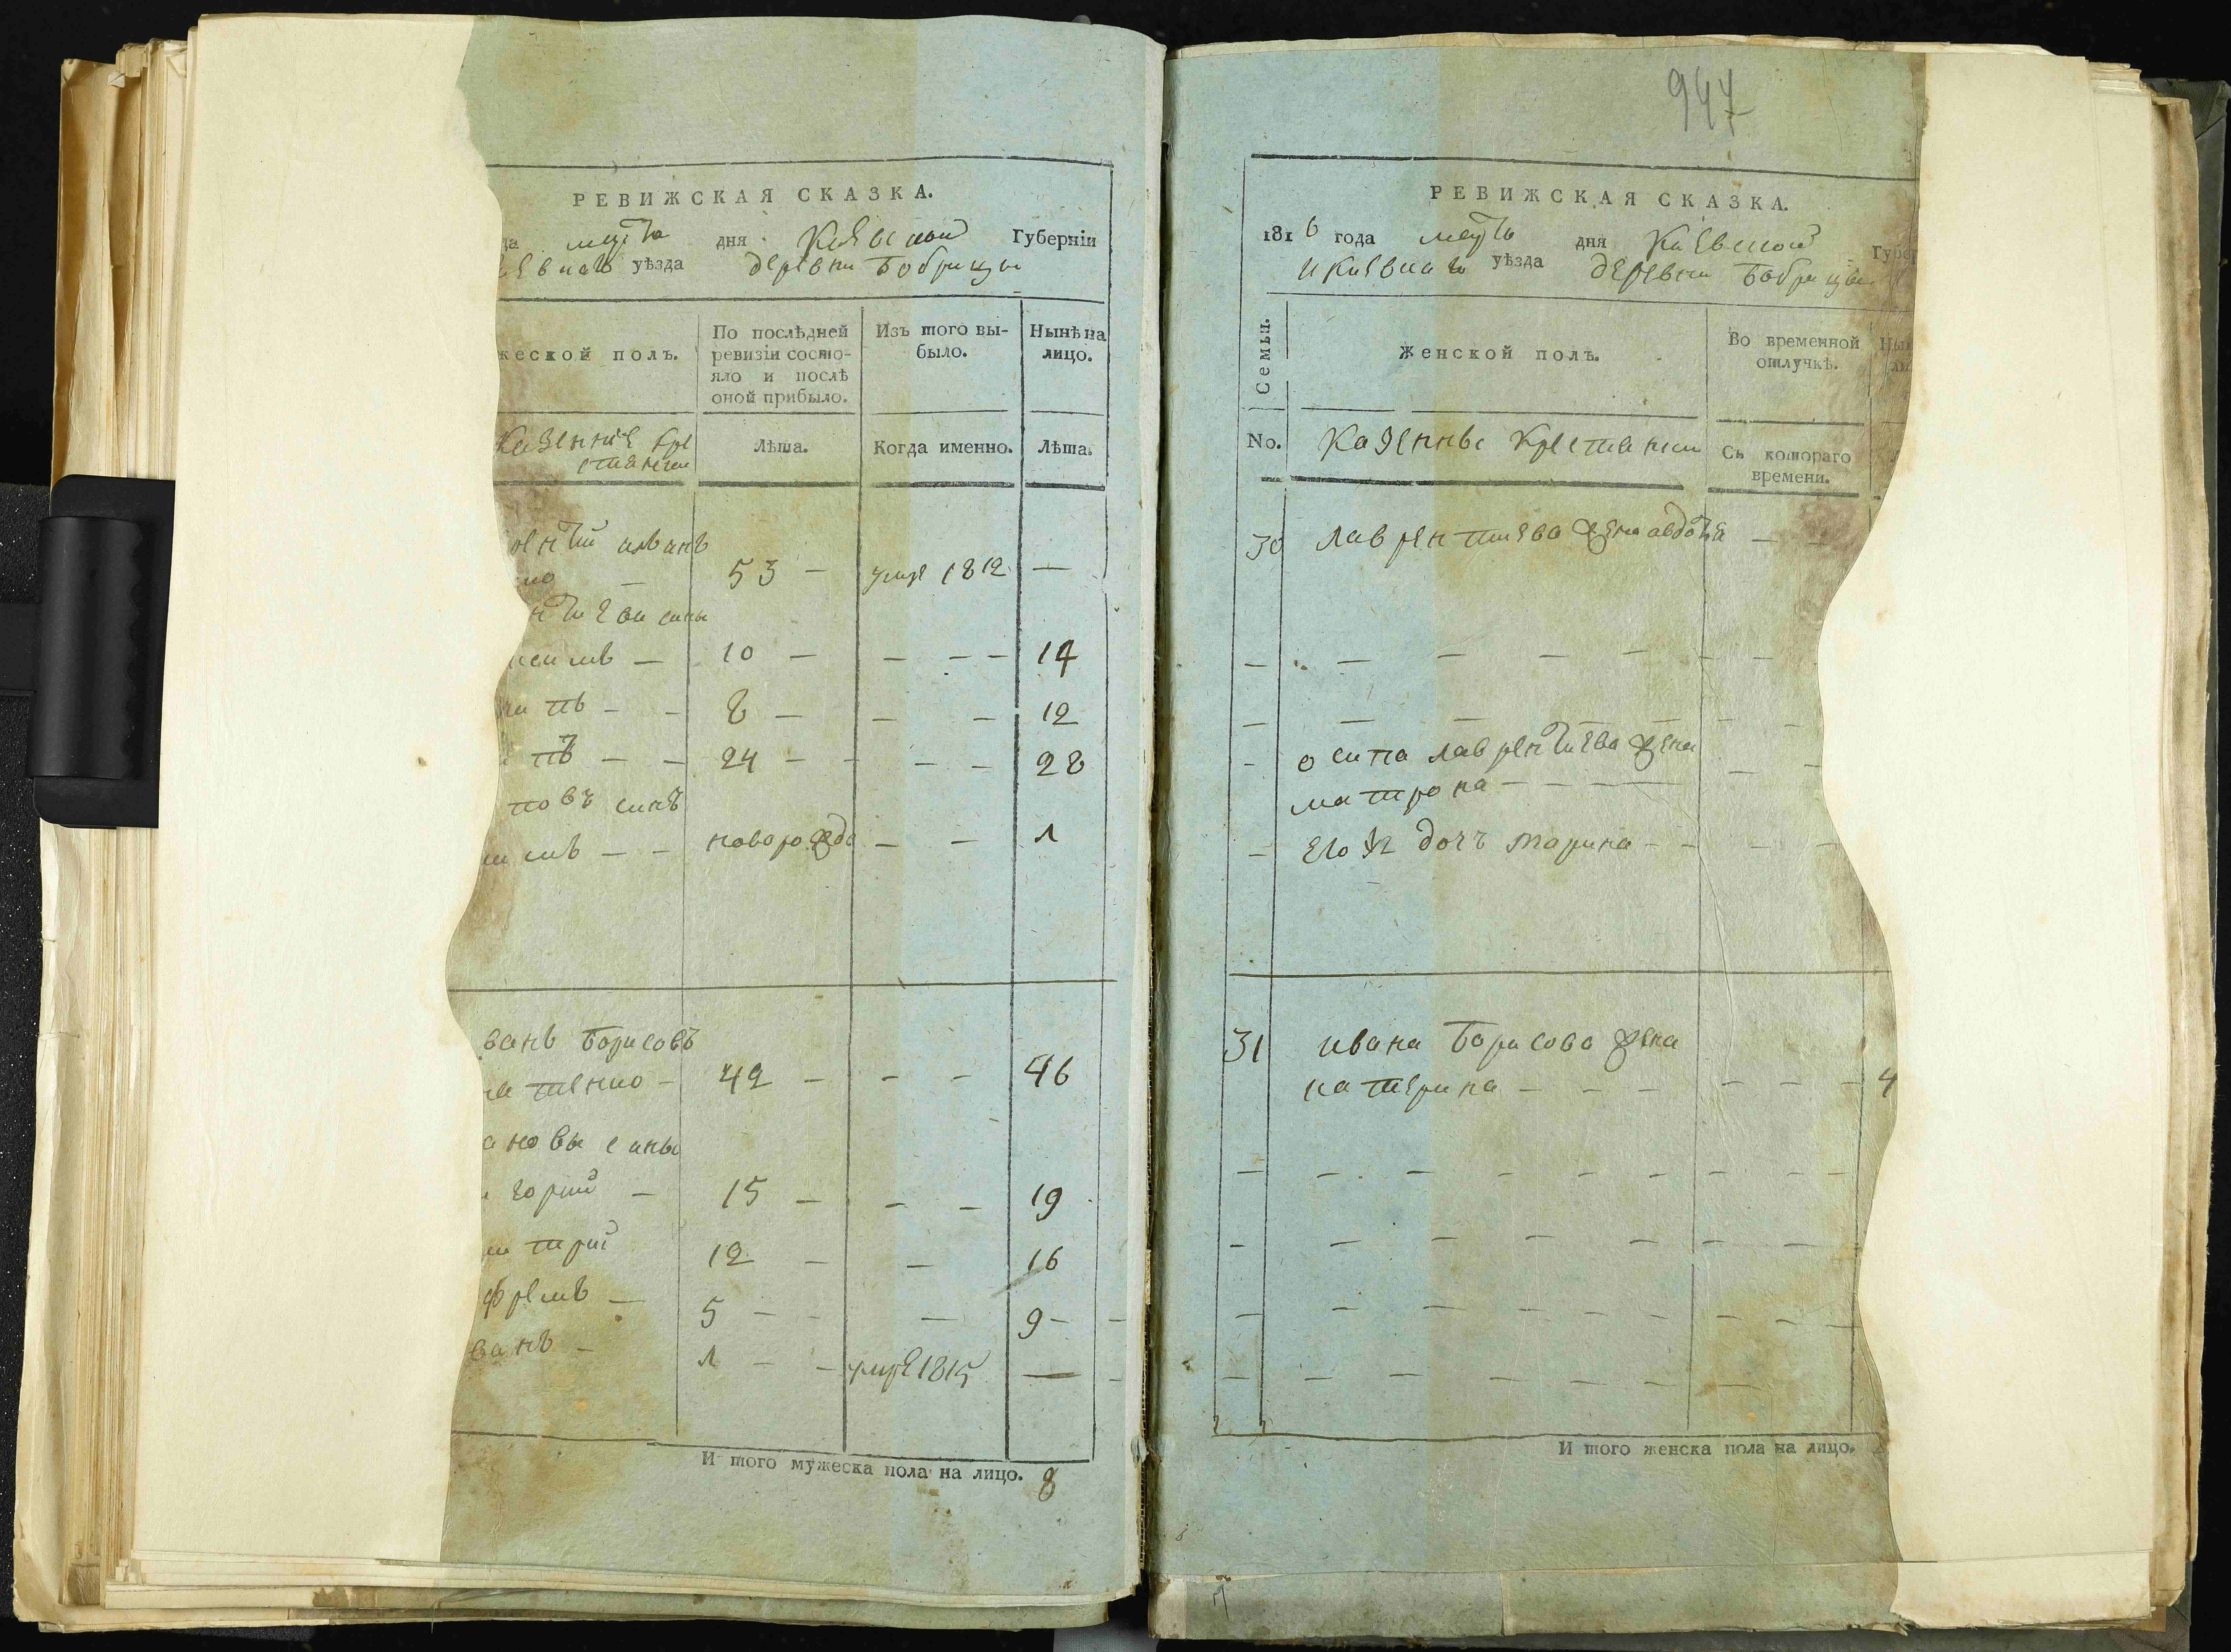 РЕВИЖСКАЯ СКАЗКА.
дня Киевской Губерніи
уѣзда деревни Бобрицы
жеской полъ.
По послѣдней ревизіи состо-
яло и послѣ
оной прибыло.
Изъ того вы-
было.
Нынѣ на
лицо.
Казенніе кре
стянеи
Лѣта.
Когда именно.
Лѣта.
рентій иванъ
53 — умре 1812 —
нтиеви сины
10 — — — — 14
8 — — — 12
24 — — — — 28
повъ синъ
новорожде — — 1
ванъ Борисовъ
42 — — — 46
ановы сины
горий — 15 — — — 19
митрий 12 — — 16
фремъ — 5 — — — 9 —
ванъ — 1 — — умре 1815 —
И того мужеска пола на лицо. 8
947
РЕВИЖСКАЯ СКАЗКА.
1816 года дня Киевской Губер
Икиевкаго уѣзда деревни Бобрицы
Семьи.
Женской полъ.
Во временной
отлучкѣ.
Нын
ли
No.
Казеннъе Крестянеи
Съ котораго
времени.
30 Лаврентиева жена авдотя — —
— — — — — — —
— — — — — — —
— осипа лаврентиева жена
матрона — — — — — —
— Его ж дочъ марина — — — —
31 ивана Борисова жена
катерина — — — — — — — 4
— — — — — — — — —
— — — — — — —
— — — — — — — — —
— — — — — — —
И того женска пола на лицо.